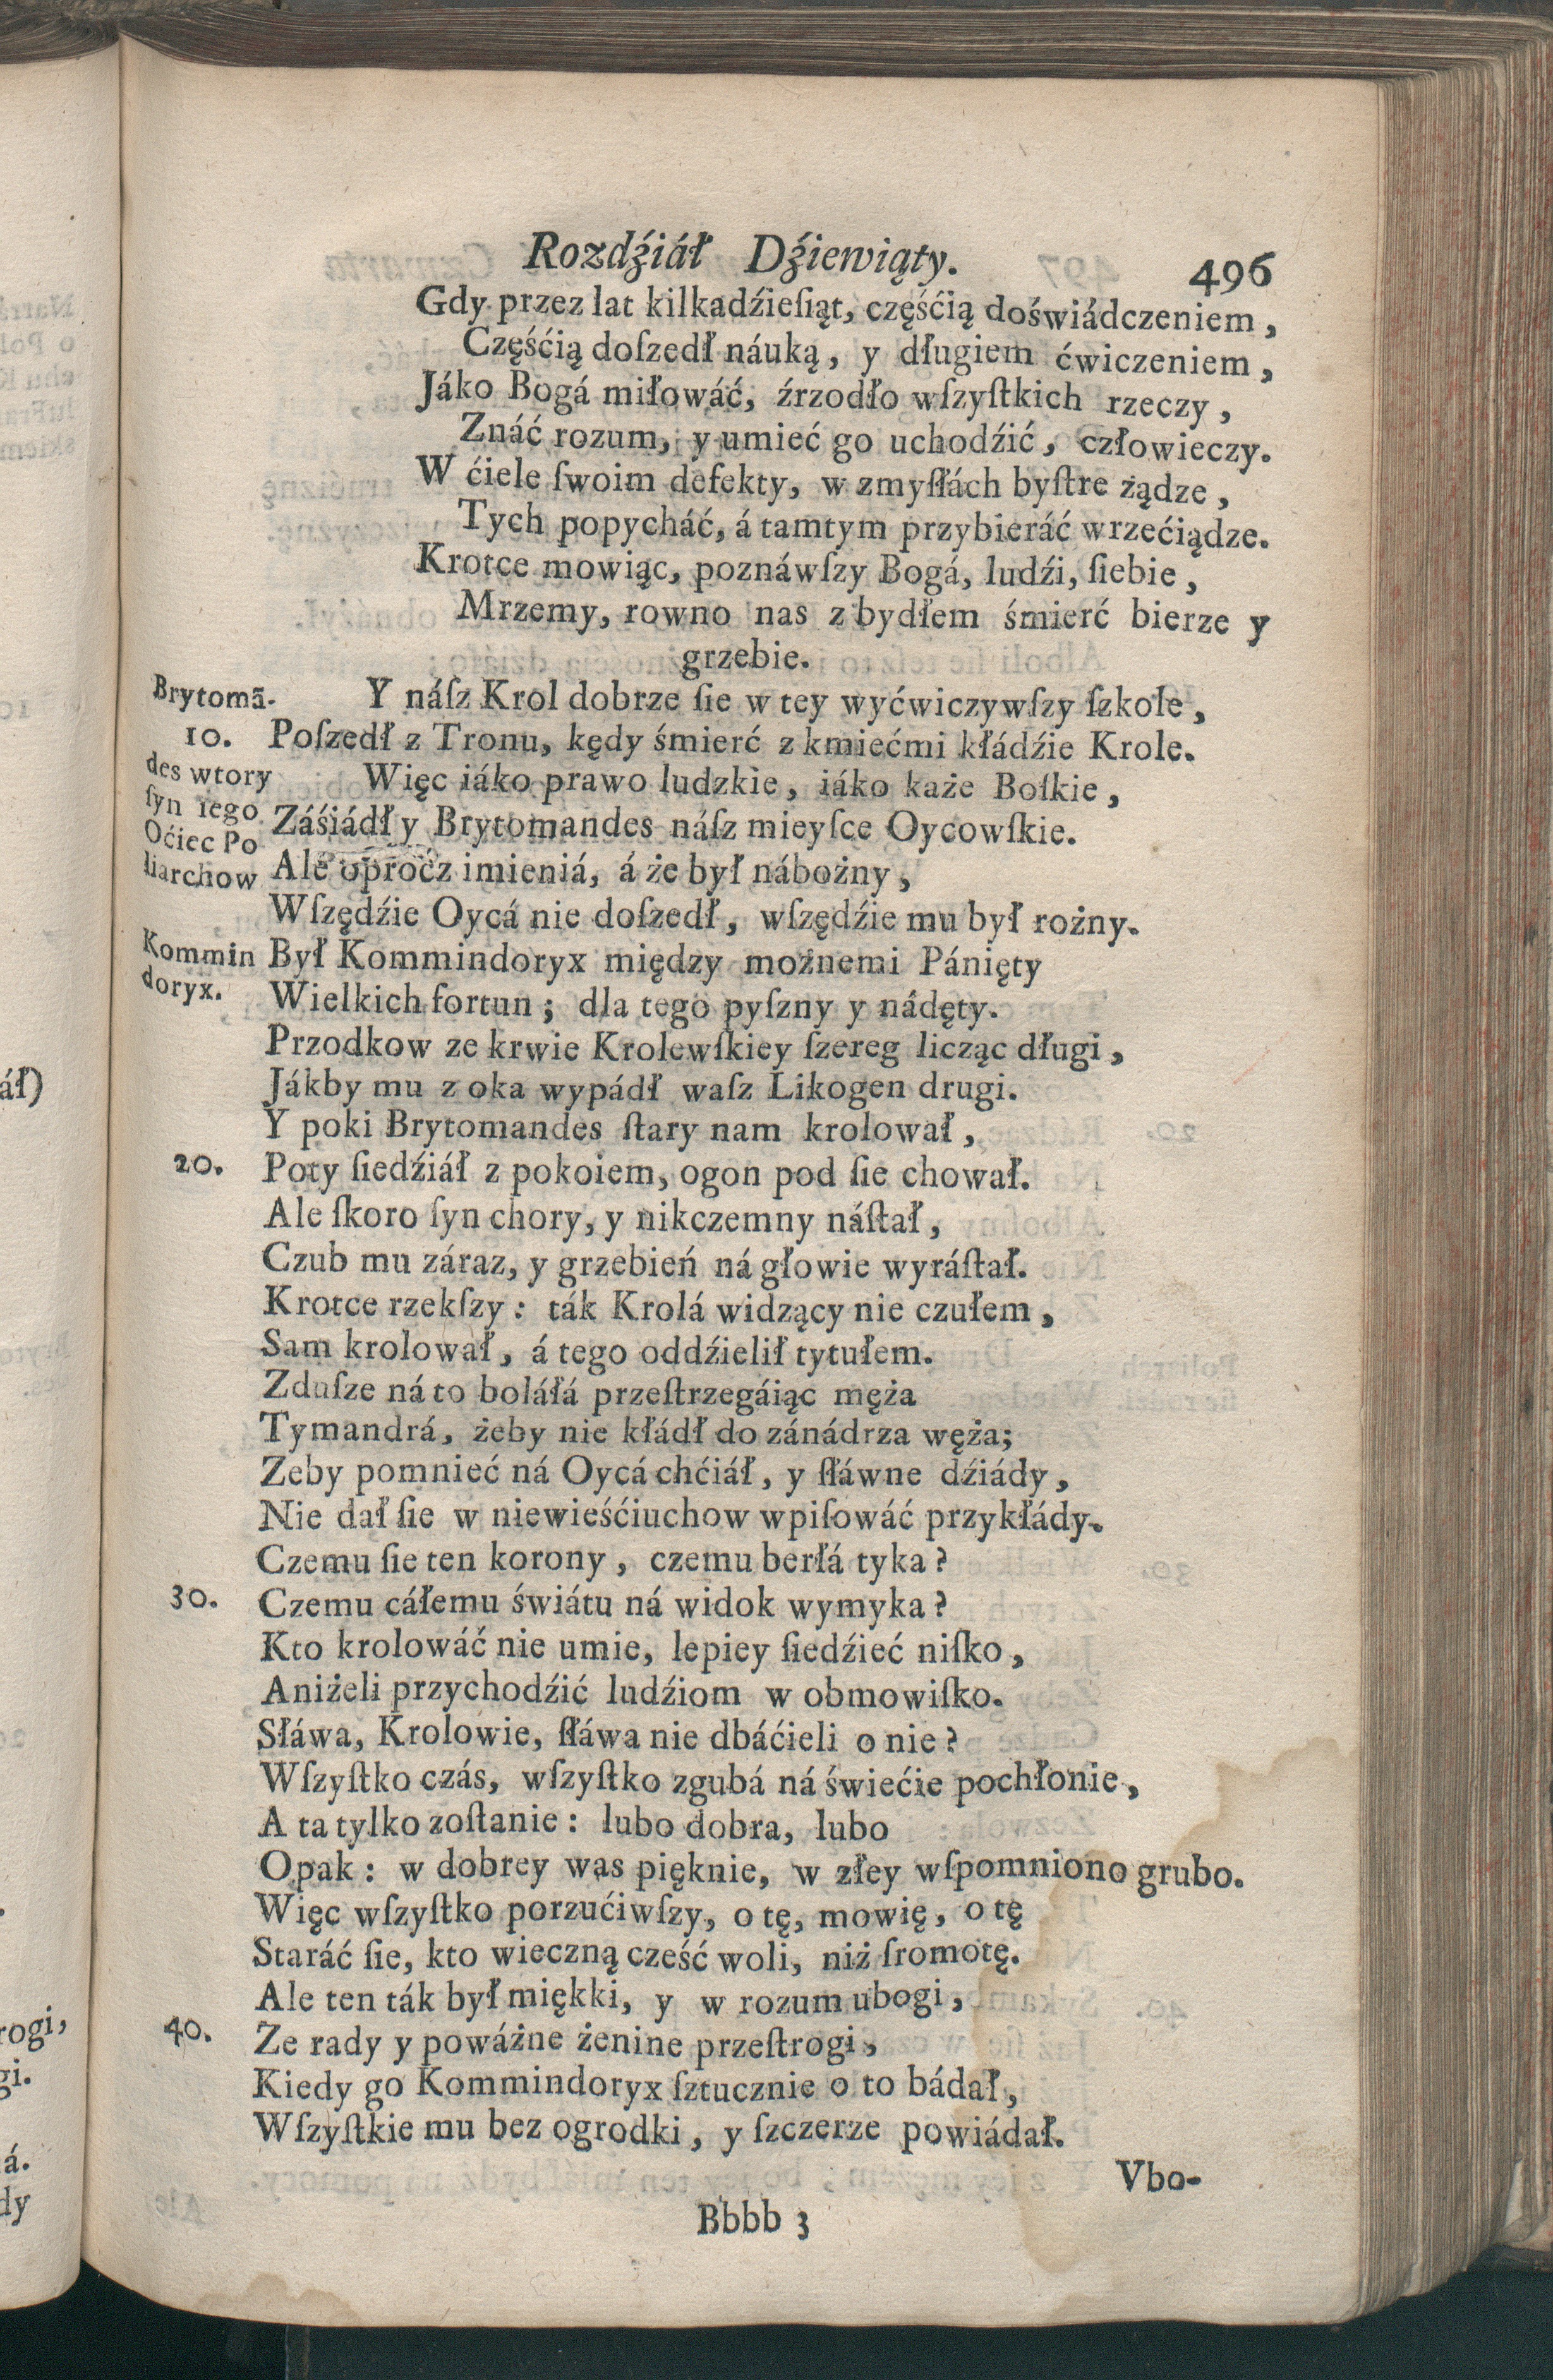 Rozdźiáł Dźiewiąty. 496
Gdy przez lat kilkadźieſiąt, częśćią doświádczeniem,
Częśćią doſzedł náuką, y długiem ćwiczeniem,
Jáko Bogá miłowáć, źrzodło wſzyſtkich rzeczy,
Znáć rozum, y umieć go uchodźić, człowieczy.
W ćiele ſwoim defekty, w zmyſłách byſtre żądze,
Tych popycháć, á tamtym przybieráć wrzećiądze.
Krotce mowiąc, poznáwſzy Bogá, ludźi, ſiebie,
Mrzemy, rowno nas z bydłem śmierć bierze y
grzebie.
Brytomā- Y náſz Krol dobrze ſie w tey wyćwiczywſzy ſzkole,
10. Poſzedł z Tronu, kędy śmierć z kmiećmi kłádźie Krole.
des wtory Więc iáko prawo ludzkie, iáko każe Boſkie,
ſyn iego Záśiádł y Brytomandes náſz mieyſce Oycowſkie.
Oćiec Po
liarchow Ale oprocz imieniá, á że był nábożny,
Wſzędźie Oycá nie doſzedł, wſzędźie mu był rożny.
Kommin Był Kommindoryx między możnemi Pánięty
doryx. Wielkich fortun; dla tego pyſzny y nádęty.
Przodkow ze krwie Krolewſkiey ſzereg licząc długi,
Jákby mu z oka wypádł waſz Likogen drugi.
Y poki Brytomandes ſtary nam krolował,
20. Poty ſiedźiáł z pokoiem, ogon pod ſie chował.
Ale ſkoro ſyn chory, y nikczemny náſtał,
Czub mu záraz, y grzebień ná głowie wyráſtał.
Krotce rzekſzy: ták Krolá widzący nie czułem,
Sam krolował, á tego oddźielił tytułem.
Zduſze ná to boláłá przeſtrzegáiąc męża
Tymandrá, żeby nie kłádł do zánádrza węża;
Zeby pomnieć ná Oycá chćiáł, y ſłáwne dźiády,
Nie dał ſie w niewieśćiuchow wpiſowáć przykłády.
Czemu ſie ten korony, czemu berłá tyka?
30. Czemu cáłemu świátu ná widok wymyka?
Kto krolowáć nie umie, lepiey ſiedźieć niſko,
Aniżeli przychodźić ludźiom w obmowiſko.
Słáwa, Krolowie, ſłáwa nie dbáćieli o nie?
Wſzyſtko czás, wſzyſtko zgubá ná świećie pochłonie,
A ta tylko zoſtanie: lubo dobra, lubo
Opak: w dobrey was pięknie, w złey wſpomniono grubo.
Więc wſzyſtko porzućiwſzy, o tę, mowię, o tę
Staráć ſie, kto wieczną cześć woli, niż ſromotę.
Ale ten ták był miękki, y w rozum ubogi,
40. Ze rady y poważne żenine przeſtrogi,
Kiedy go Kommindoryx ſztucznie o to bádał,
Wſzyſtkie mu bez ogrodki, y ſzczerze powiádał.
Vbo-
Bbbb 3